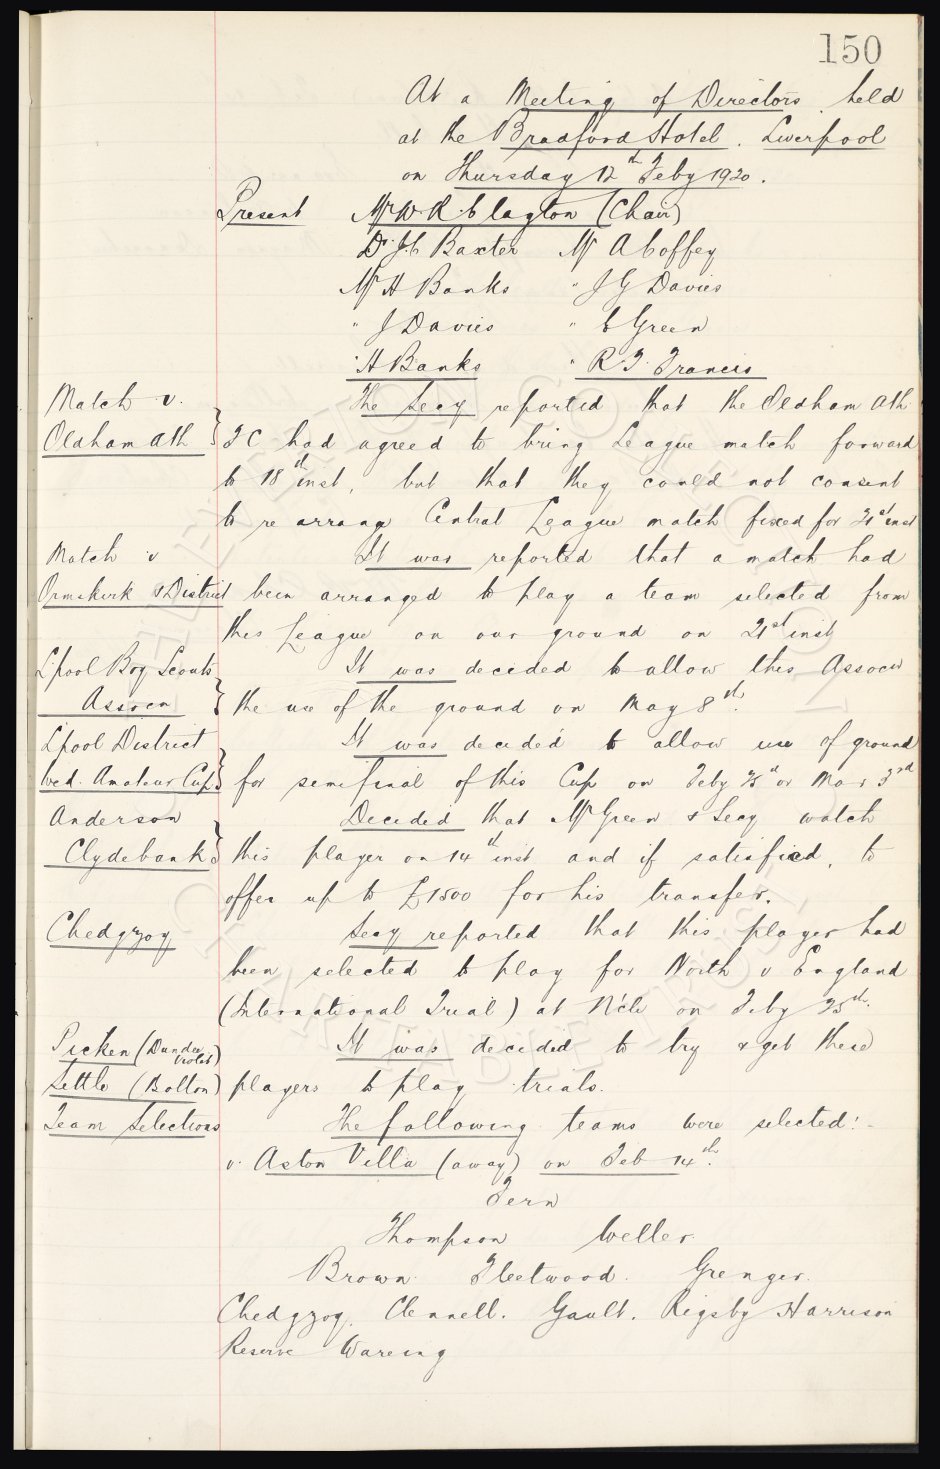 150
At a Meeting of Directors held
at the Bradford Hotel. Liverpool
on Thursday 12th Feby 1920.
Present Mr W.R. Clayton (Chair)
Dr J.C Baxter Mr A Coffey
Mr H Banks " J G Davies
" J Davies " C Green
" H Banks " R.F. Francis
Match v. The Secy reported that the Oldham Ath
Oldham Ath } FC had agreed to bring League match forward
to 18th inst, but that they could not consent
to re arrange Central League match fixed for 21st inst
Match v It was reported that a match had
Ormskirk & District been arranged to play a team selected from
this League on our ground on 21st inst
L'pool Boy Scouts It was decided to allow this Assocn
Assocn } the use of the ground on May 8th.
Lpool District It was decided to allow use of ground
Wed. Amateur Cup } for semifinal of this Cup on Feby 25th or Mar 3rd
Anderson Decided that Mr Green & Secy watch
Clydebank } this player on 14th inst and if satisfied, to
offer up to £1500 for his transfer.
Chedgzoy Secy reported that this player had
been selected to play for North v England
(International Trial) at N'cle on Feby 25th.
Picken (Dundee Violet) It was decided to try & get these
Settle (Bolton) players to play trials.
Team Selections The following teams were selected:-
v. Aston Villa (away) on Feb 14th.
Fern
Thompson Weller
Brown. Fleetwood. Grenyer.
Chedgzoy. Clennell. Gault. Rigsby Harrison
Reserve Wareing